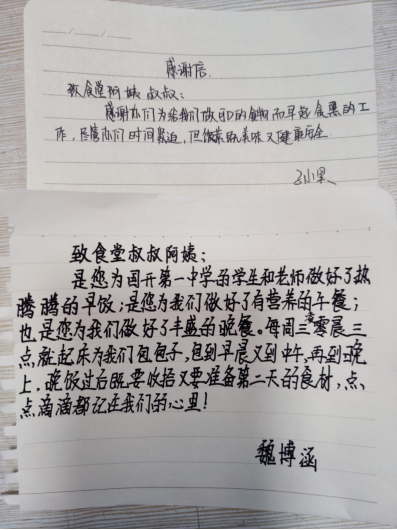 感谢信
致食堂阿姨叔叔：
感谢你们为给我们做可口的食物而早起贪黑的工
作，尽管你们时间紧迫，但做菜既美味又健康安全
致食堂叔叔阿姨：
是您为国开第一中学的学生和老师做好了热
腾腾的早饭；是您为我们做好了有营养的午餐；
也是您为我们做好了丰盛的晚餐。每周三凌晨三
点就起床为我们包包子，包到早晨又到中午，再到晚
上，晚饭过后既要收拾又要准备第二天的食材，点、
点滴滴都记在我们的心里！
魏博涵